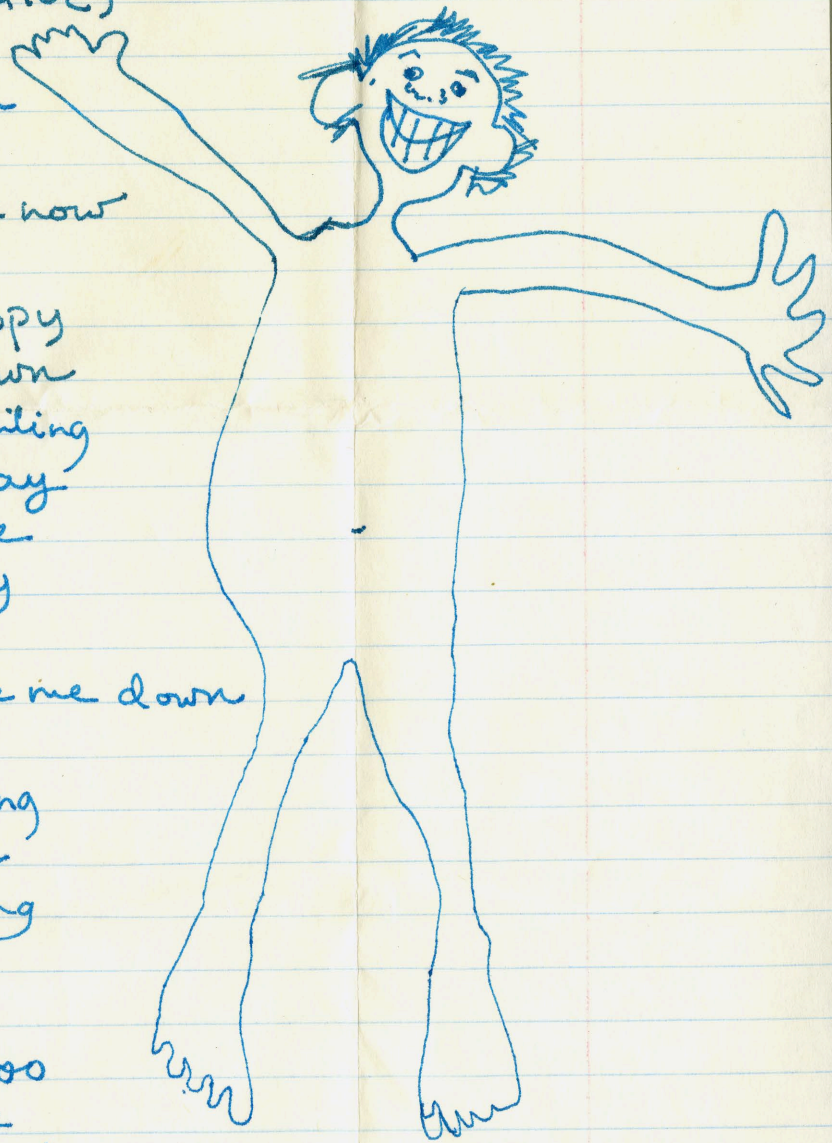 now
ppy
wn
iling
ay
e
y
e me down
ng
ng
oo